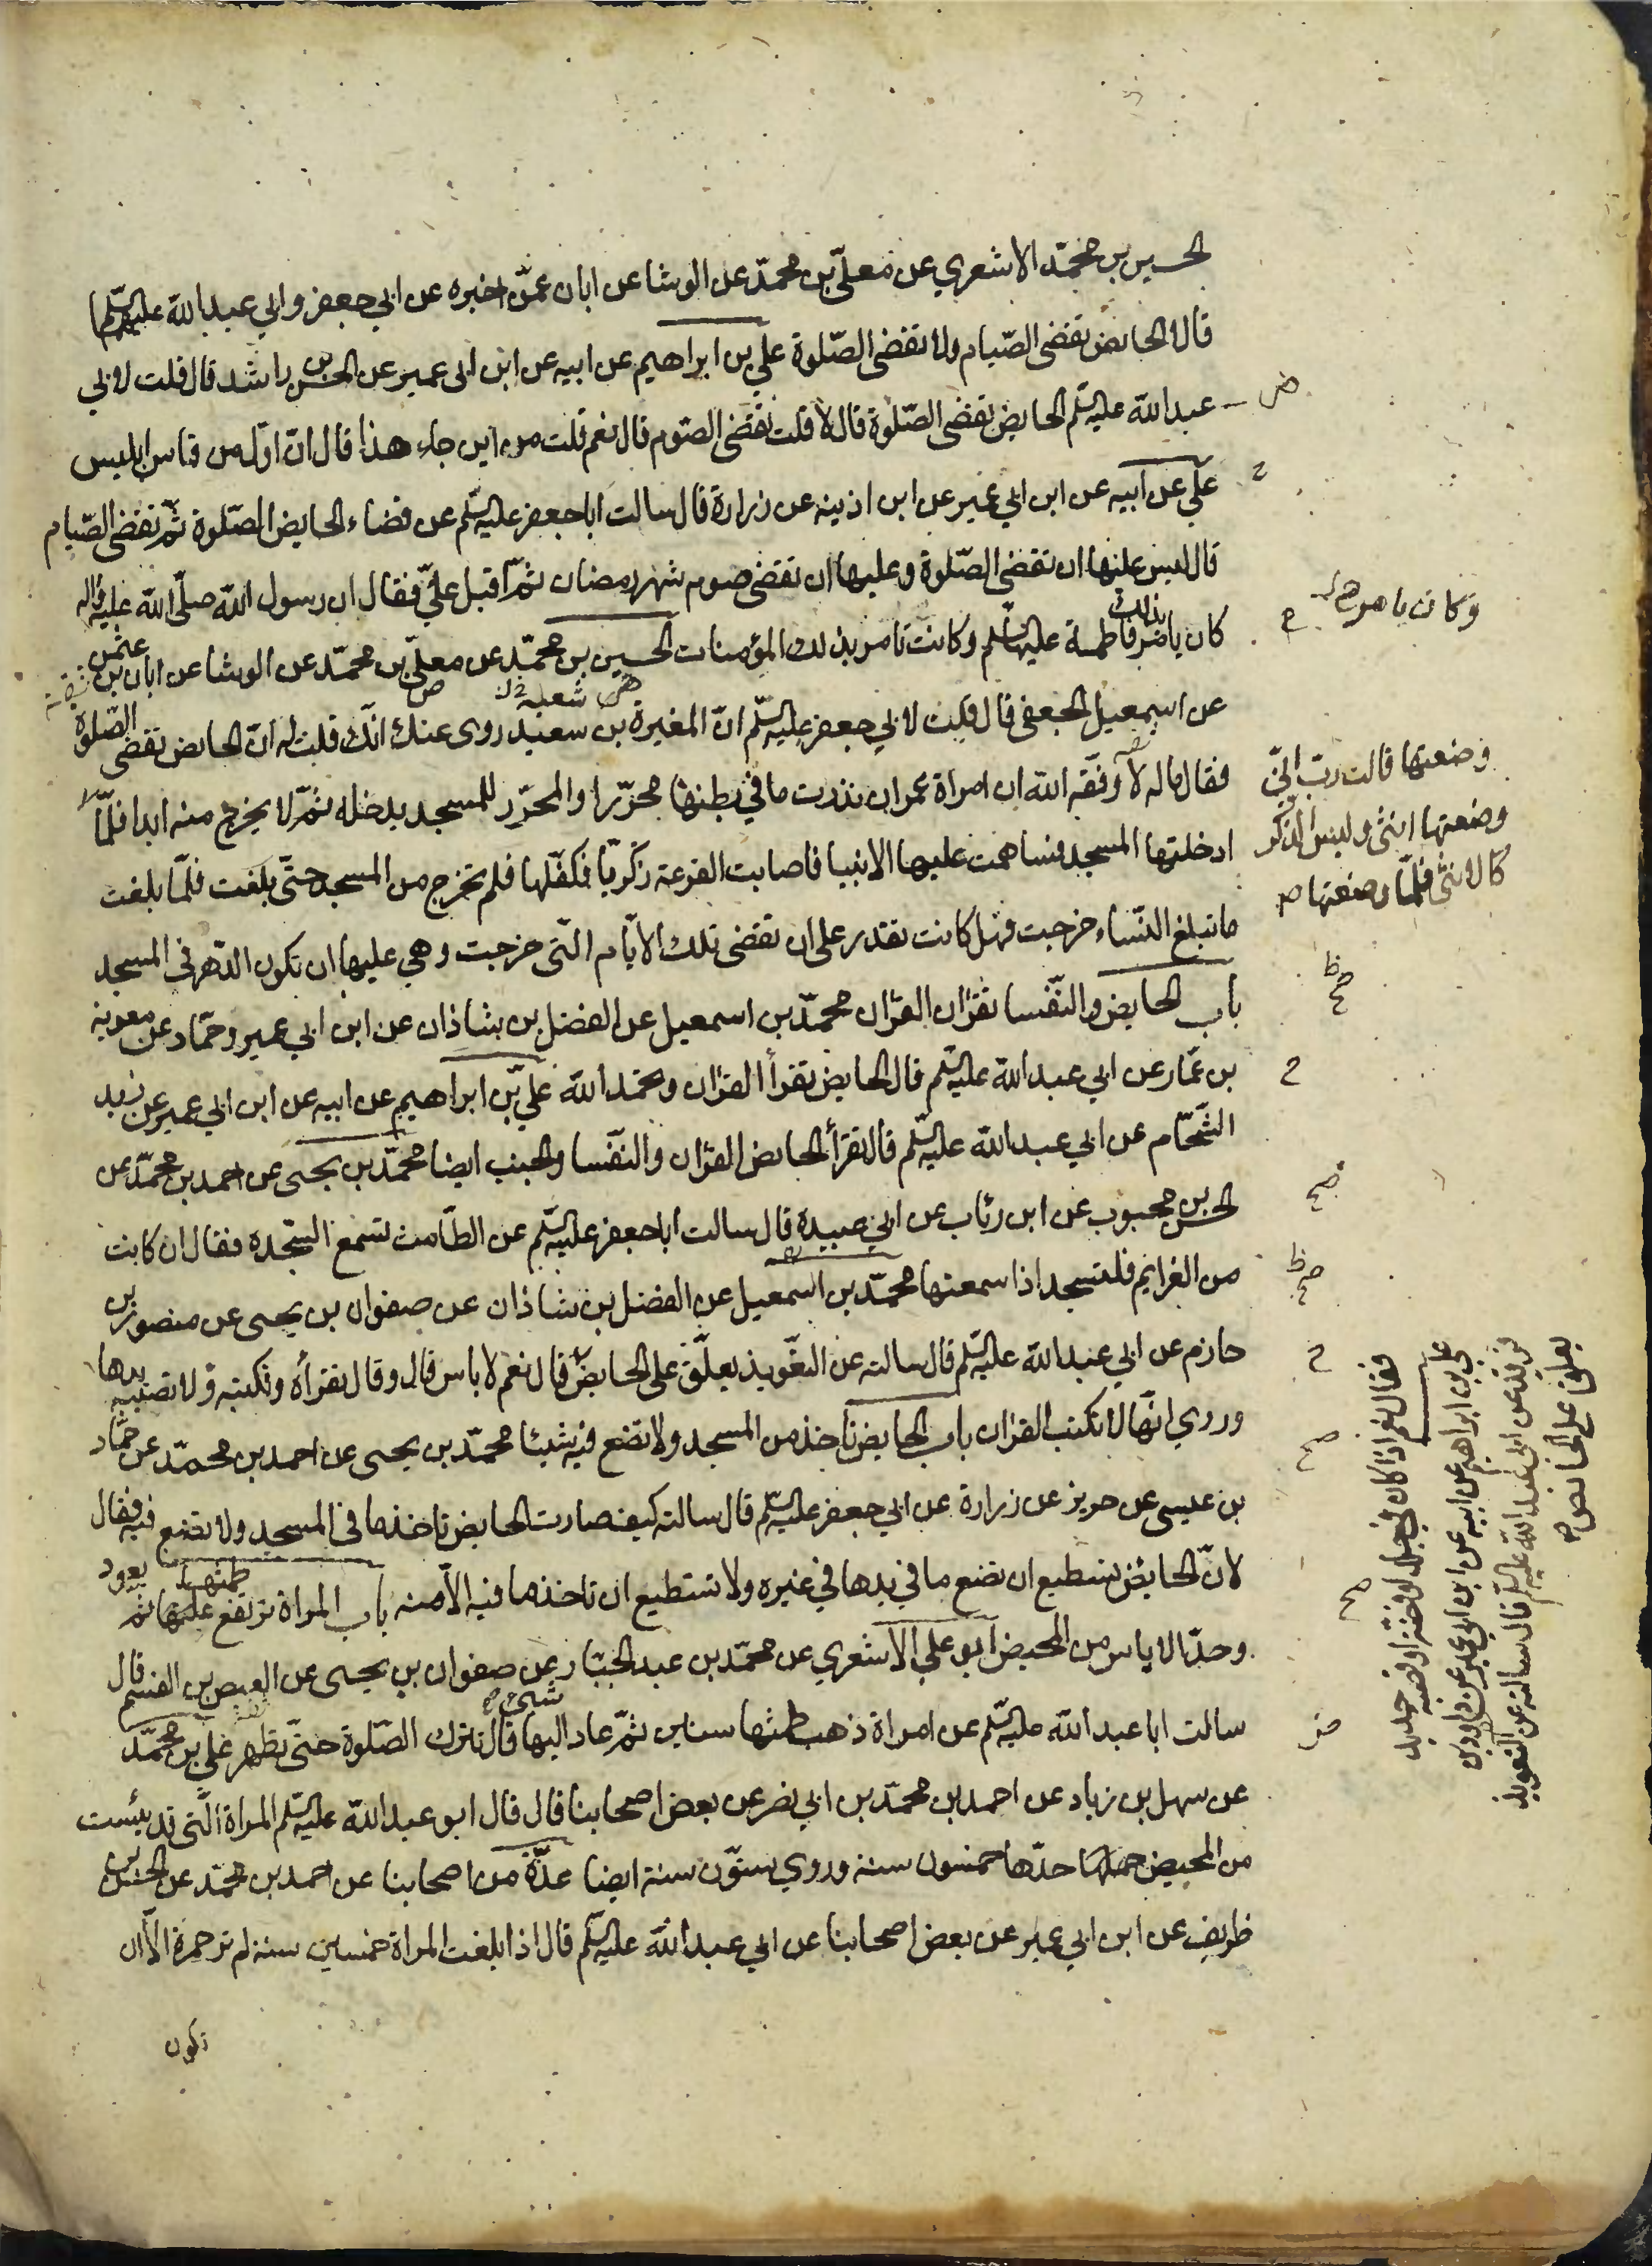 الحسين بن محمّد الاشعري عن معلّى بن محمّد عن الوشا عن ابان عمّن اخبره عن ابي جعفر و ابي عبد الله عليهما السلم
قالا الحايض تقضى الصّيام ولا تقضى الصّلوة علي بن ابراهيم عن ابيه عن ابن ابى عمير عن الحسن بن راشد قال قلت لابي
عبد الله عليه السّلم الحايض تقضى الصّلوة قال لا قلت تقضى الصّوم قال نعم قلت من اين جاء هذا قال انّ اوّل من قاس ابليس
علّي عن ابيه عن ابن ابي عمير عن ابن اذينه عن زرارة قال سالت ابا جعفر عليه السّلم عن قضاء الحايض الصّلوة ثمّ تقضى الصّيام
قال ليس عليها ان تقضى الصّلوة و عليها ان تقضى صوم شهر رمضان ثمّ اقبل علىّ فقال ان رسول الله صلّى الله عليه واله
كان يامر بذلك فاطمة عليها السّلم وكانت تامر بذلك المؤمنات الحسين بن محمّد عن معلّى بن محمّد عن الوشا عن ابان بن عثمن
عن اسمعيل الجعفى قال قلت لابي جعفر عليه السّلم انّ المغيرة بن سعيد روى عنك انّك قلت له انّ الحايض تقضى الصّلوة
شعبة
فقال ماله لا وفّقه الله ان امراة عمران نذرت ما في بطنها محرّرا والمحرّر للمسجد يدخله ثمّ لا يخرج منه ابدا فلمّا
ادخلتها المسجد فساهمت عليها الانبيا فاصابت القرعة زكريّا فكفّلها فلم تخرج من المسجد حتّى بلغت فلمّا بلغت
ما تبلغ النّساء خرجت فهل كانت تقدر على ان تقضى تلك الايّام الّتى خرجت و هي عليها ان تكون الدّهر في المسجد
باب الحايض و النّفسا تقران القران محمّد بن اسمعيل عن الفضل بن شاذان عن ابن ابي عمير و حمّاد عن معوية
بن عمّار عن ابي عبد الله عليه السّلم قال الحايض تقرأ القران و تحمد الله علي بن ابراهيم عن ابيه عن ابن ابي عمير عن زيد
الشّحّام عن ابي عبد الله عليه السّلم قال تقرأ الحايض القران والنّفسا والجنب ايضا محمّد بن يحيى عن احمد بن محمّد عن
الحسن بن محبوب عن ابن رئاب عن ابي عبيدة قال سالت ابا جعفر عليه السّلم عن الطّامث تسمع السّجدة فقال ان كانت
من العزايم فلتسجد اذا سمعتها محمّد بن اسمعيل عن الفضل بن شاذان عن صفوان بن يحيى عن منصور بن
حازم عن ابي عبد الله عليه السّلم قال سالته عن التّعويذ يعلّق على الحايض قال نعم لا باس قال و قال تقرأه وتكتبه ولا تصيبه يدها
وروي انّها لا تكتب القران باب الحايض تاخذ من المسجد ولا تضع فيه شيئا محمّد بن يحيى عن احمد بن محمّد عن حمّاد
بن عيسى عن حريز عن زرارة عن ابي جعفر عليه السّلم قال سالته كيف صارت الحايض تاخذ ما في المسجد ولا تضع فيه فقال
لانّ الحايض تستطيع ان تضع ما في يدها في غيره ولا تستطيع ان تاخذ ما فيه الّا منه باب المراة ترتفع طمثها ثمّ يعود
وحدّ الاياس من المحيض ابو علي الاشعري عن محمّد بن عبد الجبّار عن صفوان بن يحيى عن العيص بن القسم قال
سالت ابا عبد الله عليه السّلم عن امراة ذهب طمثها سنين ثمّ عاد اليها شئ قال تترك الصّلوة حتّى تطهر علي بن محمّد
عن سهل بن زياد عن احمد بن محمّد بن ابي نصر عن بعض اصحابنا قال قال ابو عبد الله عليه السّلم المراة الّتى قد يئست
من المحيض حدّها خمسون سنة وروي ستّون سنة ايضا عدّة من اصحابنا عن احمد بن محمّد عن الحسن بن
ظريف عن ابن ابي عمير عن بعض اصحابنا عن ابي عبد الله عليه السّلم قال اذا بلغت المراة خمسين سنة لم تر حمرة الّا ان
تكون
وكان يامر
وضعتها قالت ربّ انّي
وضعتها انثى و ليس الذّكر
كالانثى فلمّا وضعتها
فقال نعم اذا كان في جلد او فضّة او قصبة حديد
علي بن ابراهيم عن ابيه عن ابن ابي عمير عن داود بن
فرقد عن ابي عبد الله عليه السّلم قال سالته عن التّعويذ
يعلّق على الحايض